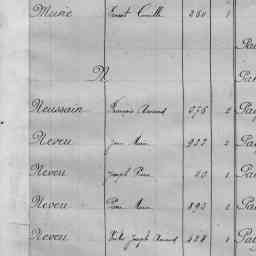 Murie Ernest Camille 260 1
Pa
N. Pa
Neussain François Armand 076 2 Pa
Neveu Jean Marie 922 2 Pa
Neveu Joseph Pierre 1 Pa
Neveu Pierre Marie 892 2 Pa
Neveu Joseph Armand 428 1 Pa